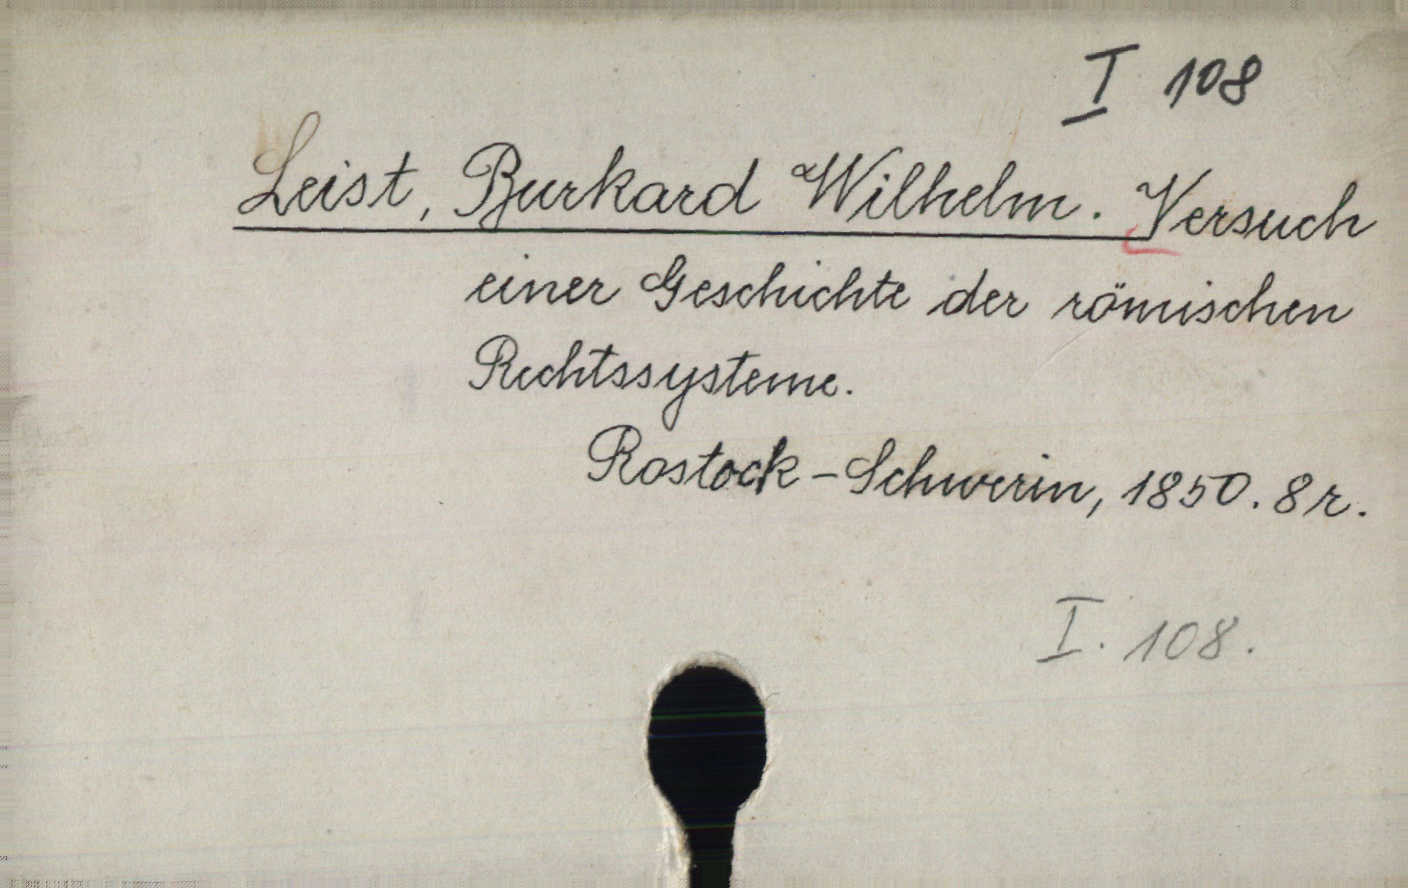 I 108
Leist, Burkard Wilhelm. Versuch
einer Geschichte der römischen
Rechtssysteme.
Rostock-Schwerin, 1850. 8r.
I. 108.